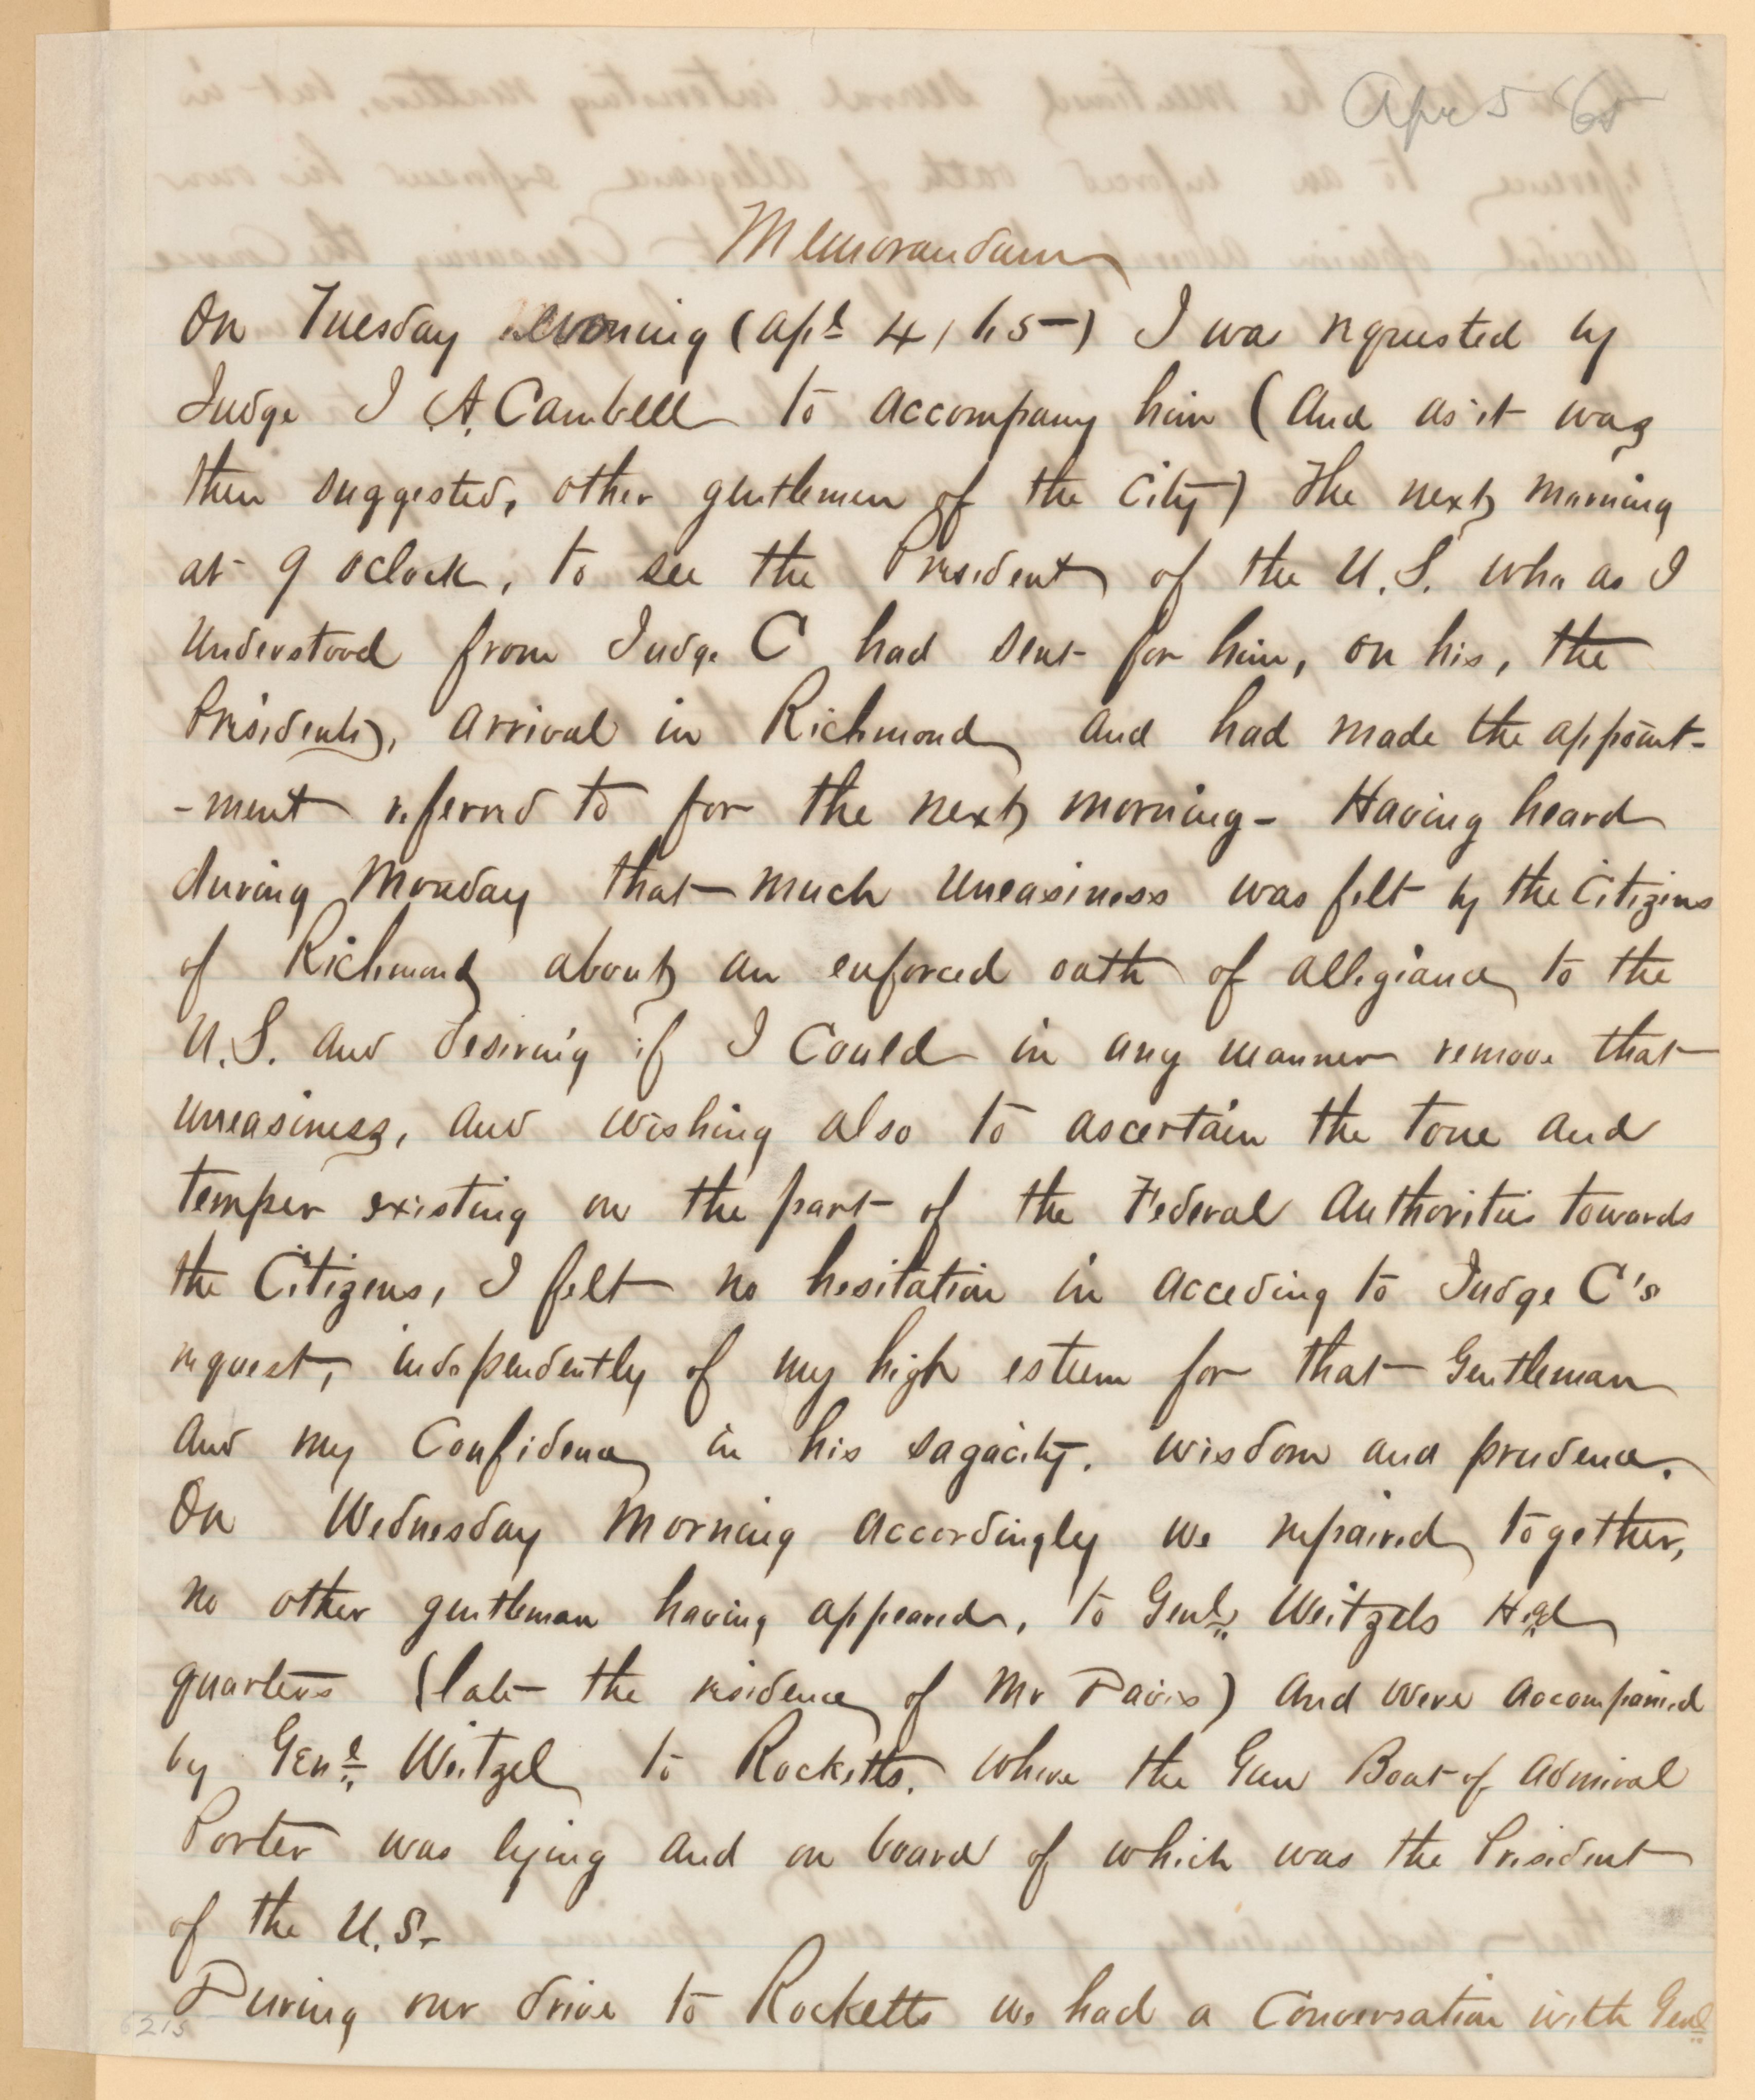 Apr 5 '65
Memorandum
On Tuesday evening (Apl 4, 65-) I was requested by
Judge J A. Cambell to accompany him (and as it was
then suggested, other gentlemen of the city) the next morning
at 9 oclock, to see the President of the U.S. who as I
understood from Judge C had sent for him, on his, the
Presidents, arrival in Richmond and had made the appoint-
-ment referred to for the next morning - Having heard
during Monday that much uneasiness was felt by the Citizens
of Richmond about an enforced oath of allegiance to the
U.S. and desiring if I could in any manner remove that
uneasiness, and wishing also to ascertain the tone and
temper existing on the part of the Federal Authorities towards
the Citizens, I felt no hesitation in acceding to Judge C's
request, independently of my high esteem for that Gentleman
and my Confidence in his sagacity, wisdom and prudence.
On Wednesday morning accordingly we repaired together,
no other gentleman having appeared, to Genl Weitzels Hed
quarters (late the residence of Mr Davis) and were accompanied
by Genl Weitzel to Rocketts, where the Gun Boat of Admiral
Porter was lying and on board of which was the President
of the U.S.
During our drive to Rocketts we had a Conversation with Genl
6215